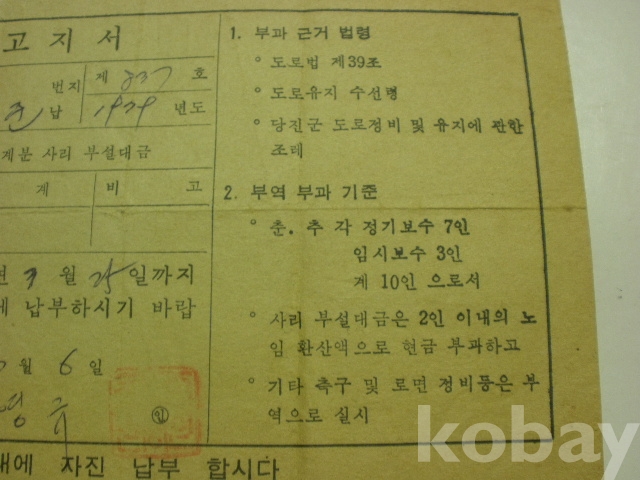 고 지 서
번지 제 237 호
납 1979 년도
계분 사리 부설대금
계 비 고
월 25 일까지
납부하시기 바랍
월 6 일
영
인
자진 납부 합시다
1. 부과 근거 법령
° 도로법 제39조
° 도로유지 수선령
° 당진군 도로정비 및 유지에 관한
조테
2. 부역 부과 기준
° 춘. 추 각 정기보수 7인
임시보수 3인
계 10인 으로서
° 사리 부설대금은 2인 이내의 노
임 환산액으로 현금 부과하고
° 기타 측구 및 로면 정비등은 부
역으로 실시
kobay